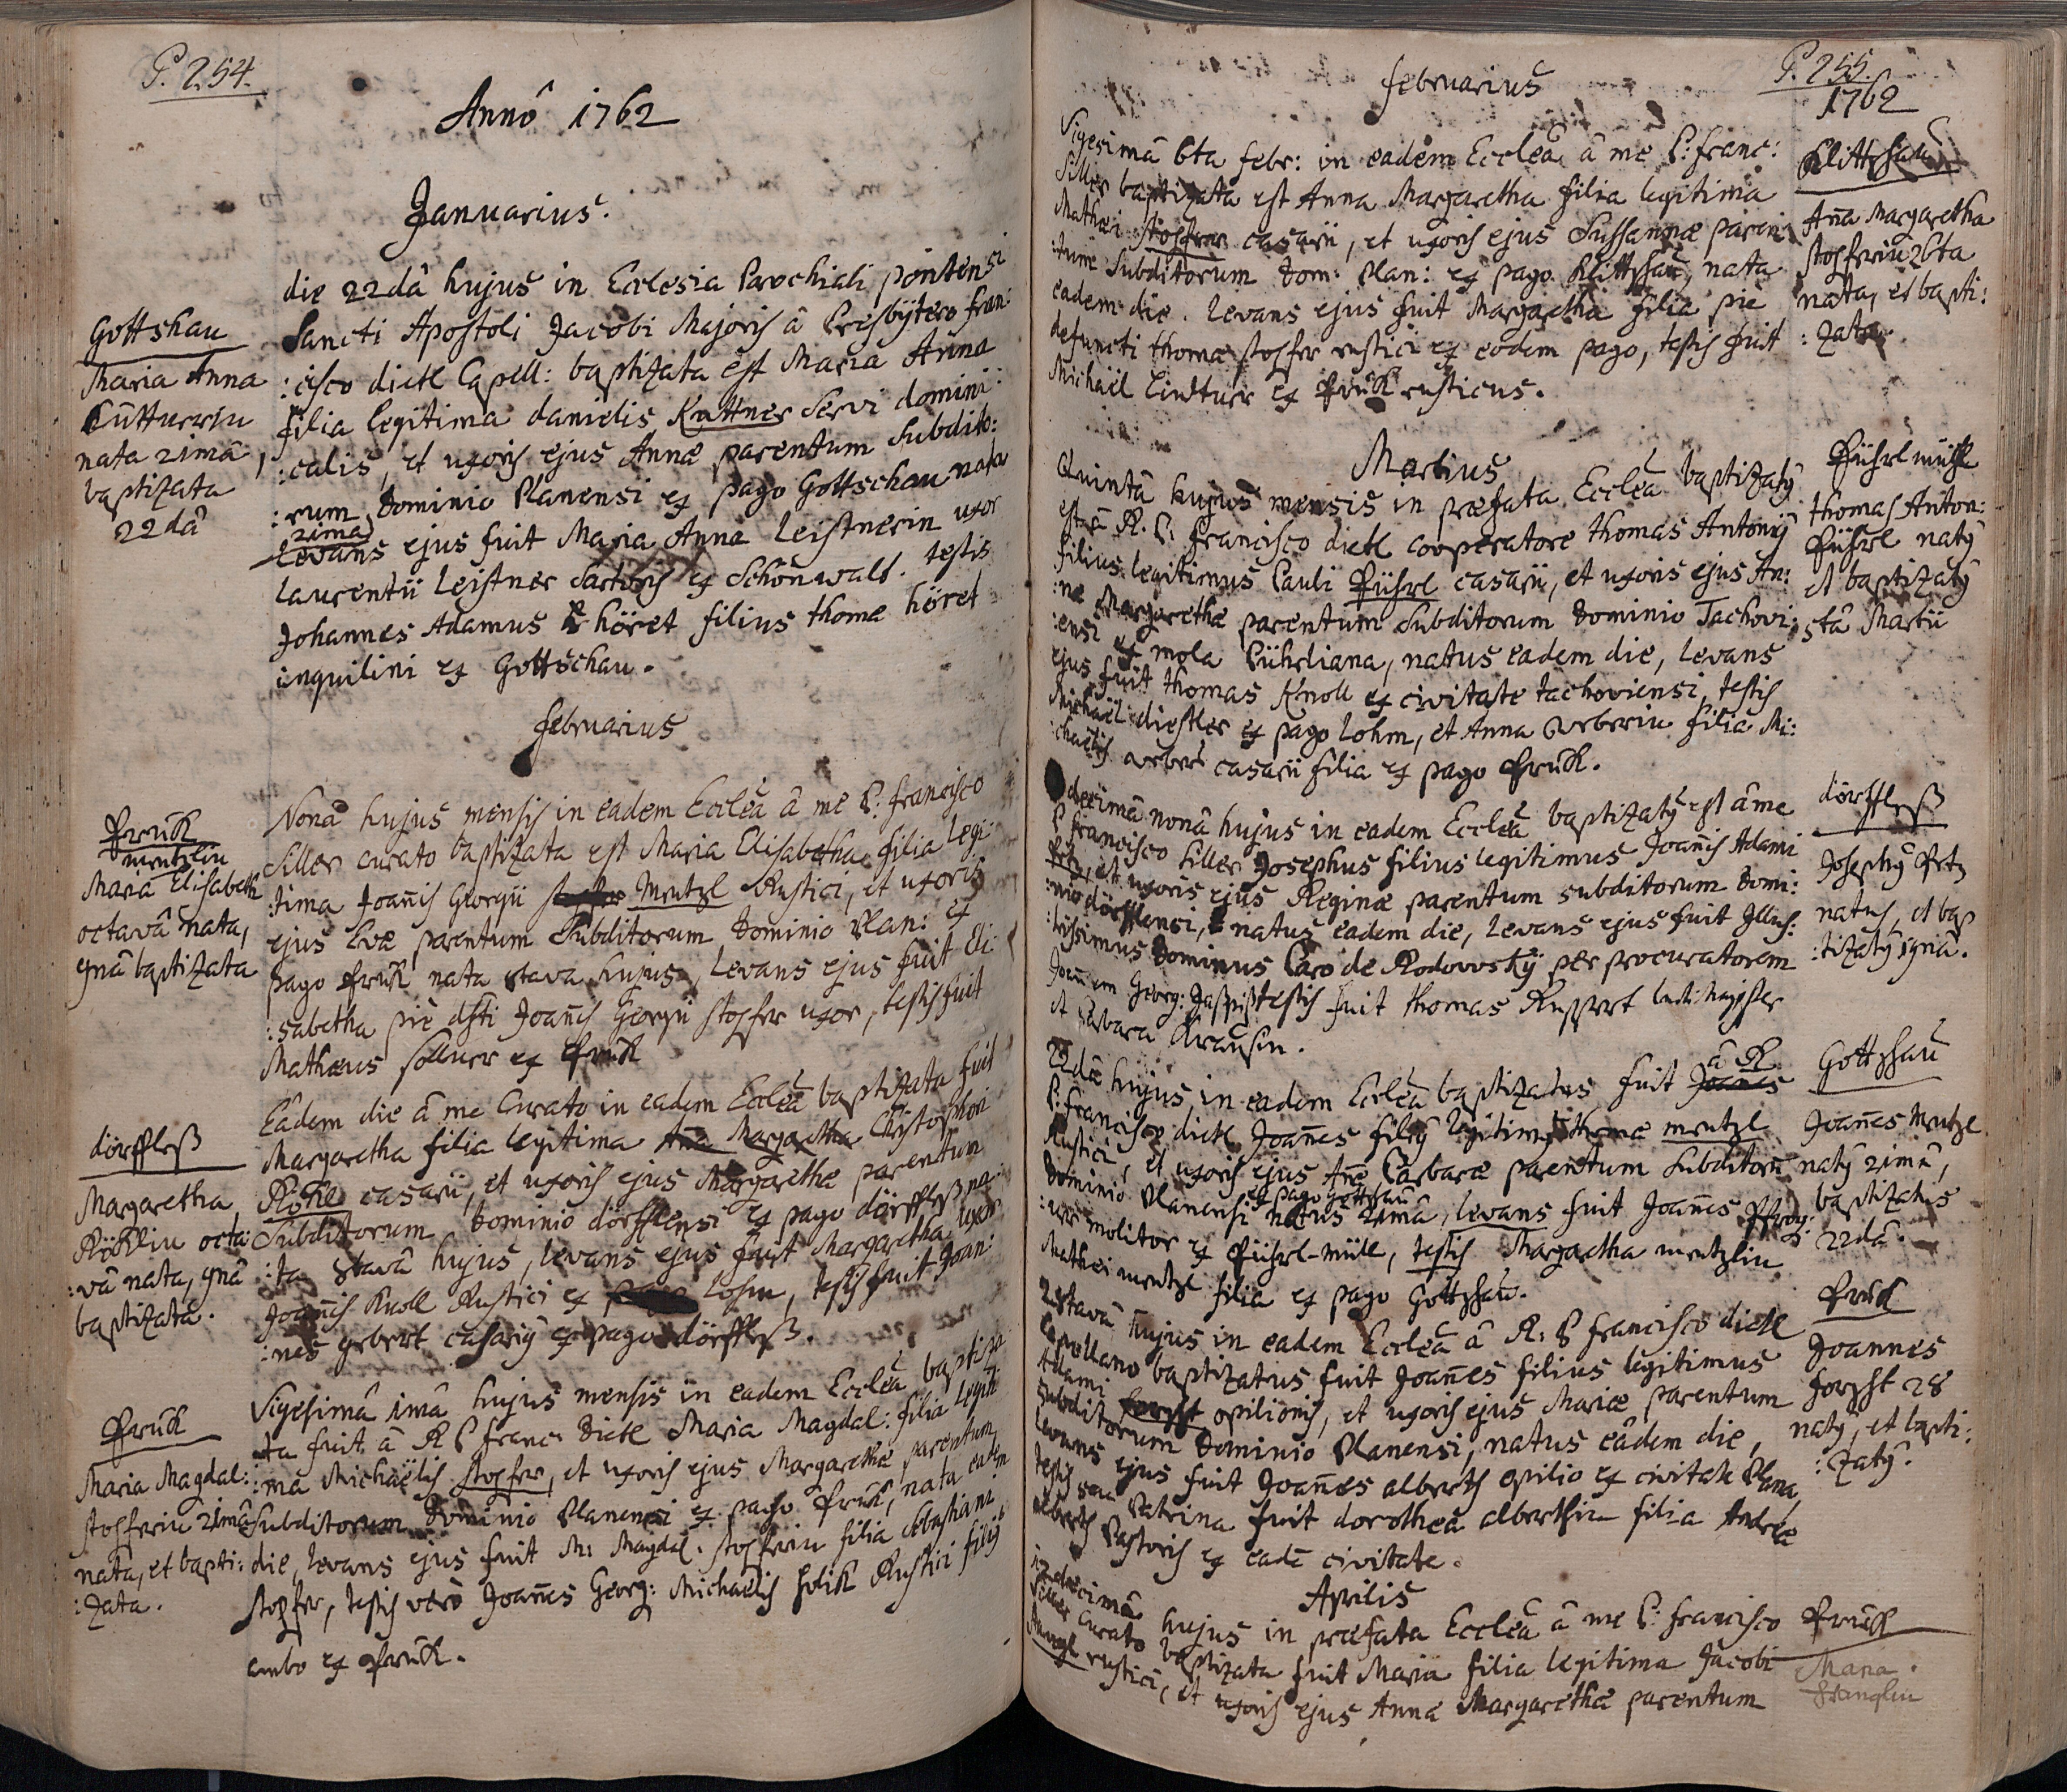 P. 254.
Annô 1762
Januarius.
Gottshau
Maria Anna
Küttnerin
nata 21mâ,
baptizata
22dâ
die 22dâ hujus in Ecclesia Parochiali pontensi
Sancti Apostoli Jacobi Majoris â Presbÿtero Fran:
:cisco dietl Capell: baptizata est Maria Anna
filia legitima danielis Kuttner Servi domini:
:calis, et uxoris ejus Annæ parentum Subdito:
:rum Dominio Planensi ex pago Gottschau nata
21ma
Levans ejus fuit Maria Anna Leistnerin uxor
Laurentii Leistner Sartoris ex Schönwalt. testis
Johannes Adamus höret filius thomæ höret
inquilini ex Gottschau.
Februarius
Pruck
Mentzlin
Maria Elisabeth
octavâ nata,
9nâ baptizata
Nonâ hujus mensis in eadem Ecclea â me P: Francisco
Siller curato baptizata est Maria Elisabetha filia legi
:tima Joannis Georgii Mentzl Rustici, et uxoris
ejus Evæ parentum Subditorum Dominio Plan: ex
pago Pruck nata 8tava hujus, Levans ejus fuit Eli:
:sabetha piè dfti Joannis Georgii stopfer uxor, testis fuit
Mathæus sollner ex Pruck
dörffleß
Margaretha
Röcklin octa:
:vâ nata, 9nâ
baptizata.
Eâdem die â me Curato in eadem Ecclea baptizata fuit
Margaretha filia legitima Ana Margaretha Christophori
Röckl casarii, et uxoris ejus Margarethæ parentum
Subditorum Dominio dörfflensi ex pago dörffleß na:
:ta 8tavâ hujus, levans ejus fuit Margaretha uxor
Joannis Knoll Rustici ex Lohm, testis fuit Joan:
:nes gebert casariÿ ex pago dörffleß.
Pruck
Maria Magdal:
stopferin 21mâ
nata, et bapti:
:zata.
Vigesimâ 1mâ hujus mensis in eadem Ecclea baptiza
ta fuit â R P Franc Dietl Maria Magdal: filia legiti
:ma Michaëlis stopfer, et uxoris ejus Margarethæ parentum
Subditorum Dominio Planensi ex pago Pruck, nata eadem
die, levans ejus fuit M: Magdal: stopferin filia Sebastiani
stopfer, testis verò Joannes Georg: Michaelis Rustici filiÿ
ambo ex Pruck.
P. 255.
1762
Februarius
Vigesimâ 6ta Febr: in eadem Ecclea â me P: Franc:
Siller baptizata est Anna Margaretha filia legitima
Mathæi stopfer casarii, et uxoris ejus Sussannæ paren:
:tum Subditorum Dom: Plan: ex pago Klittshau, nata
eadem die. Levans ejus fuit Margaretha filia piè
defuncti thomæ stopfer rustici ex eodem pago, testis fuit
Michaël Lindtner ex Pruck rusticus.
Klittshau
Aña Margaretha
stopferin 26ta
nata, et bapti:
:zata.
Martius
Quintâ hujus mensis in præfata Ecclea baptizatÿ
est â R. P. Francisco dietl cooperatore thomas Antoniÿ
filius legitimus Pauli Pührl casarii, et uxoris ejus An:
:næ Margarethæ parentum Subditorum Dominio Tachovi:
:ensi ex mola Pührliana, natus eadem die, levans
ejus fuit thomas Knoll ex civitate tachoviensi, testis
Michaël diestler ex pago Lohm, et Anna Weberin filia Mi:
:chaëlis weber casarii filia ex pago Pruck.
Pührl mühl
thomas Anton:
Pührl natÿ
et baptizatÿ
5tâ Martii
decimâ nonâ hujus in eadem Ecclea baptizatÿ est â me
P Francisco Siller Josephus filius legitimus Joannis Adami
Petz, et uxoris ejus Reginæ parentum subditorum Domi:
:nio dörfflensi, natus eadem die, Levans ejus fuit Illus:
:trissimus Dominus Caro de Rodovvskÿ per procuratorem
Joannem Georg: testis fuit thomas Ruppert ludi Magister
et barbara Krausin.
dörffleß
Josephÿ Petz
natus, et bap
:tizatÿ 19nâ.
22dâ hujus in eadem Ecclea baptizatus fuit Joannes â R
P: Francisco dietl Joannes filiÿ legitimÿ thomæ mentzl
Rustici, et uxoris ejus Añæ Barbaræ parentum Subditorũ
Dominio Planensi ex pago Gottshau natus 21mâ, levans fuit Joannes
:ner molitor ex Pührl-müll, testis Margaretha mentzlin
Mathei mentzl filia ex pago Gottshau.
Gottshau
Joannes Mentzl
natÿ 21mâ,
baptizatus
22dâ.
28tavâ hujus in eadem Ecclea â R: P Francisco dietl
Capellano baptizatus fuit Joannes filius legitimus
Adami forgst opilionis, et uxoris ejus Mariæ parentum
Subditorum Dominio Planensi, natus eâdem die,
Levans ejus fuit Joannes alberth opilio ex civitate Plana,
testis seu Patrina fuit dorothea alberthin filia Andreæ
alberth Pastoris ex eadẽ civitate.
Pruck
Joannes
forgst 28
natÿ, et bapti:
:zatÿ.
Aprilis
undecimâ hujus in præfata Ecclea â me P: Francisco
Siller Curato baptizata fuit Maria filia legitima Jacobi
rustici, et uxoris ejus Annæ Margarethæ parentum
Pruck
Maria